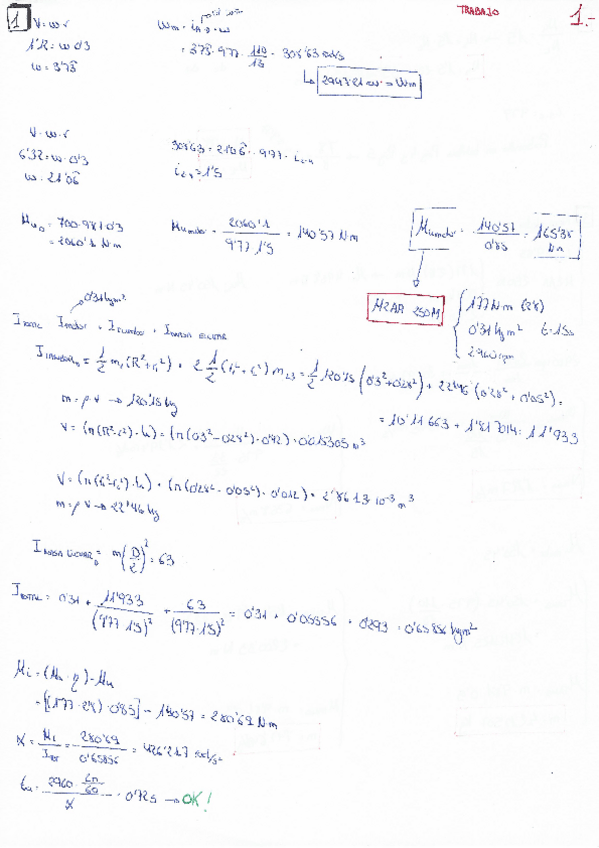 TRABAJO
1.-
1
V = w · r
1'12 = w · 0'3
w = 3'73
Wm = i
= 3'73 · 9'77 · 110/13 = 308'63 rad/s
2947'21 = Wm
V = w · r
6'32 = w · 0'3
w = 21'06
308'63 = 21'06 · 9'77 · i
i = 1'5
Mu = 700 · 9'81 · 0'3
= 2060'1 Nm
Mumotor = 2060'1 / 9'77 · 1'5 = 140'57 Nm
Mumotor = 140'57 / 0'85 = 165'38 Nm
0'31 kgm²
M2AR 250M
177 Nm (2'8)
0'31 kgm² t = 15s
2960 rpm
I total = I motor + I tambor + I masa
I tambor = 1/2 m₁ (R² + r₁²) + 2 1/2 (r₁² + r²) m₂,₃ = 1/2 120'15 (0'3² + 0'28²) + 22'46 (0'28² + 0'05²) =
m = ρ · V → 120'15 kg
= 10'11663 + 1'817014 = 11'933
V = (π (R² - r²) · h) = (π (0'3² - 0'28²) · 0'42) = 0'015305 m³
V = (π (r₁² - r²) · h) = (π (0'28² - 0'05²) · 0'012) = 2'8613 · 10⁻³ m³
m = ρ · V → 22'46 kg
I masa = m (D/2)² = 63
I total = 0'31 + 11'933 / (9'77 · 1'5)² + 63 / (9'77 · 1'5)² = 0'31 + 0'05556 + 0'293 = 0'65856 kgm²
Mi = (Mn · η) - Mu
= [(177 · 2'8) · 0'85] - 140'57 = 280'69 Nm
α = Mi / Itot = 280'69 / 0'65856 = 426'217 rad/s²
ta = 2960 · 2π/60 / α = 0'72s → OK!